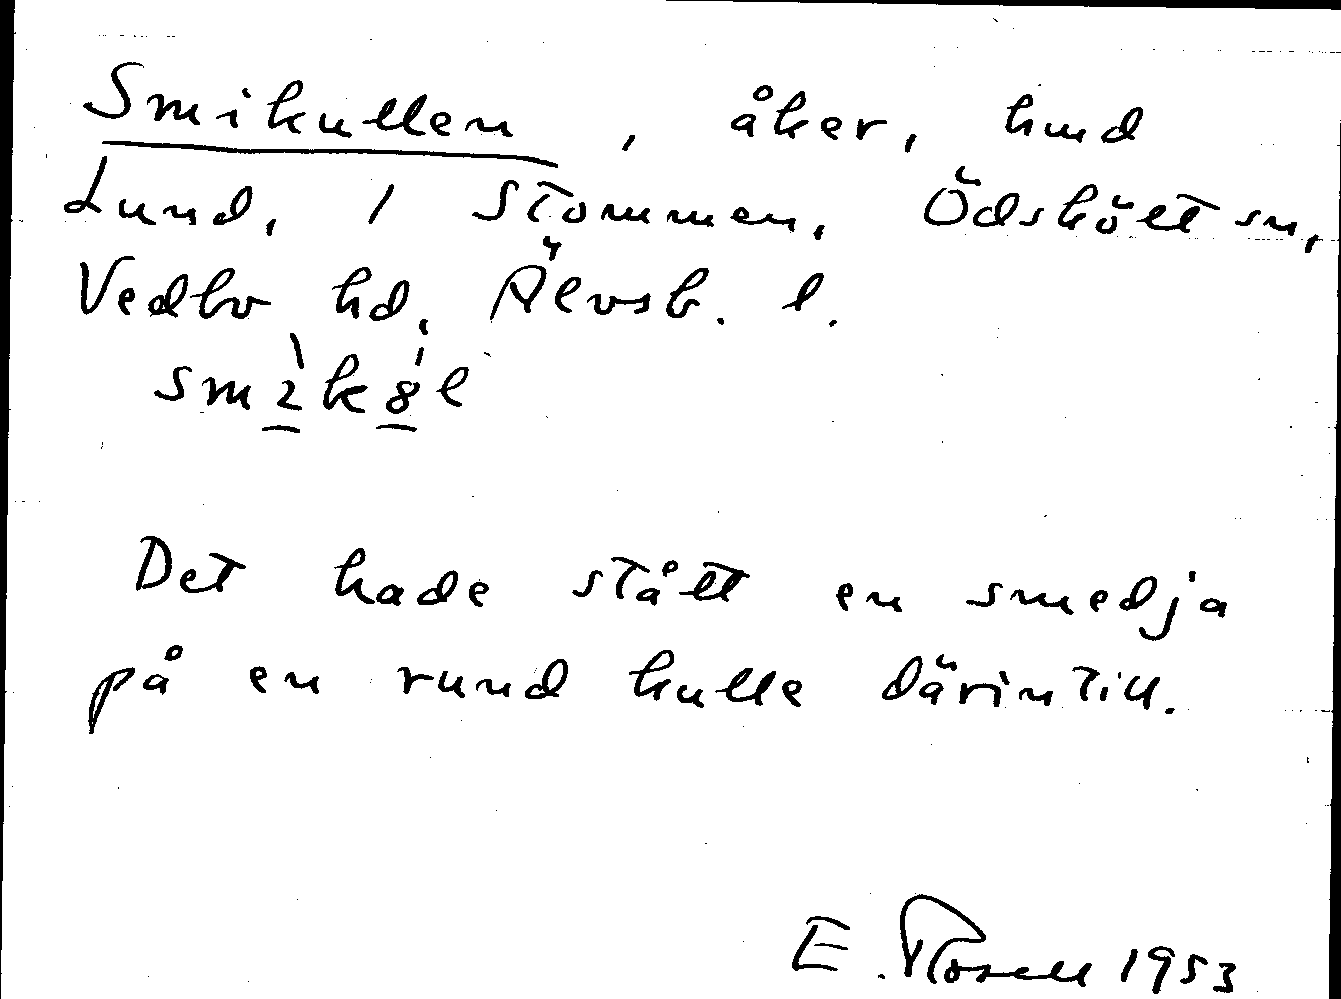 Smikullen, åker, hmd
Lund, 1 Stommen, Ödskölt sn,
Vedbo hd, Älvsb. l.
Det hade stått en smedja
på en rund kulle därintill.
E. Rosell 1953